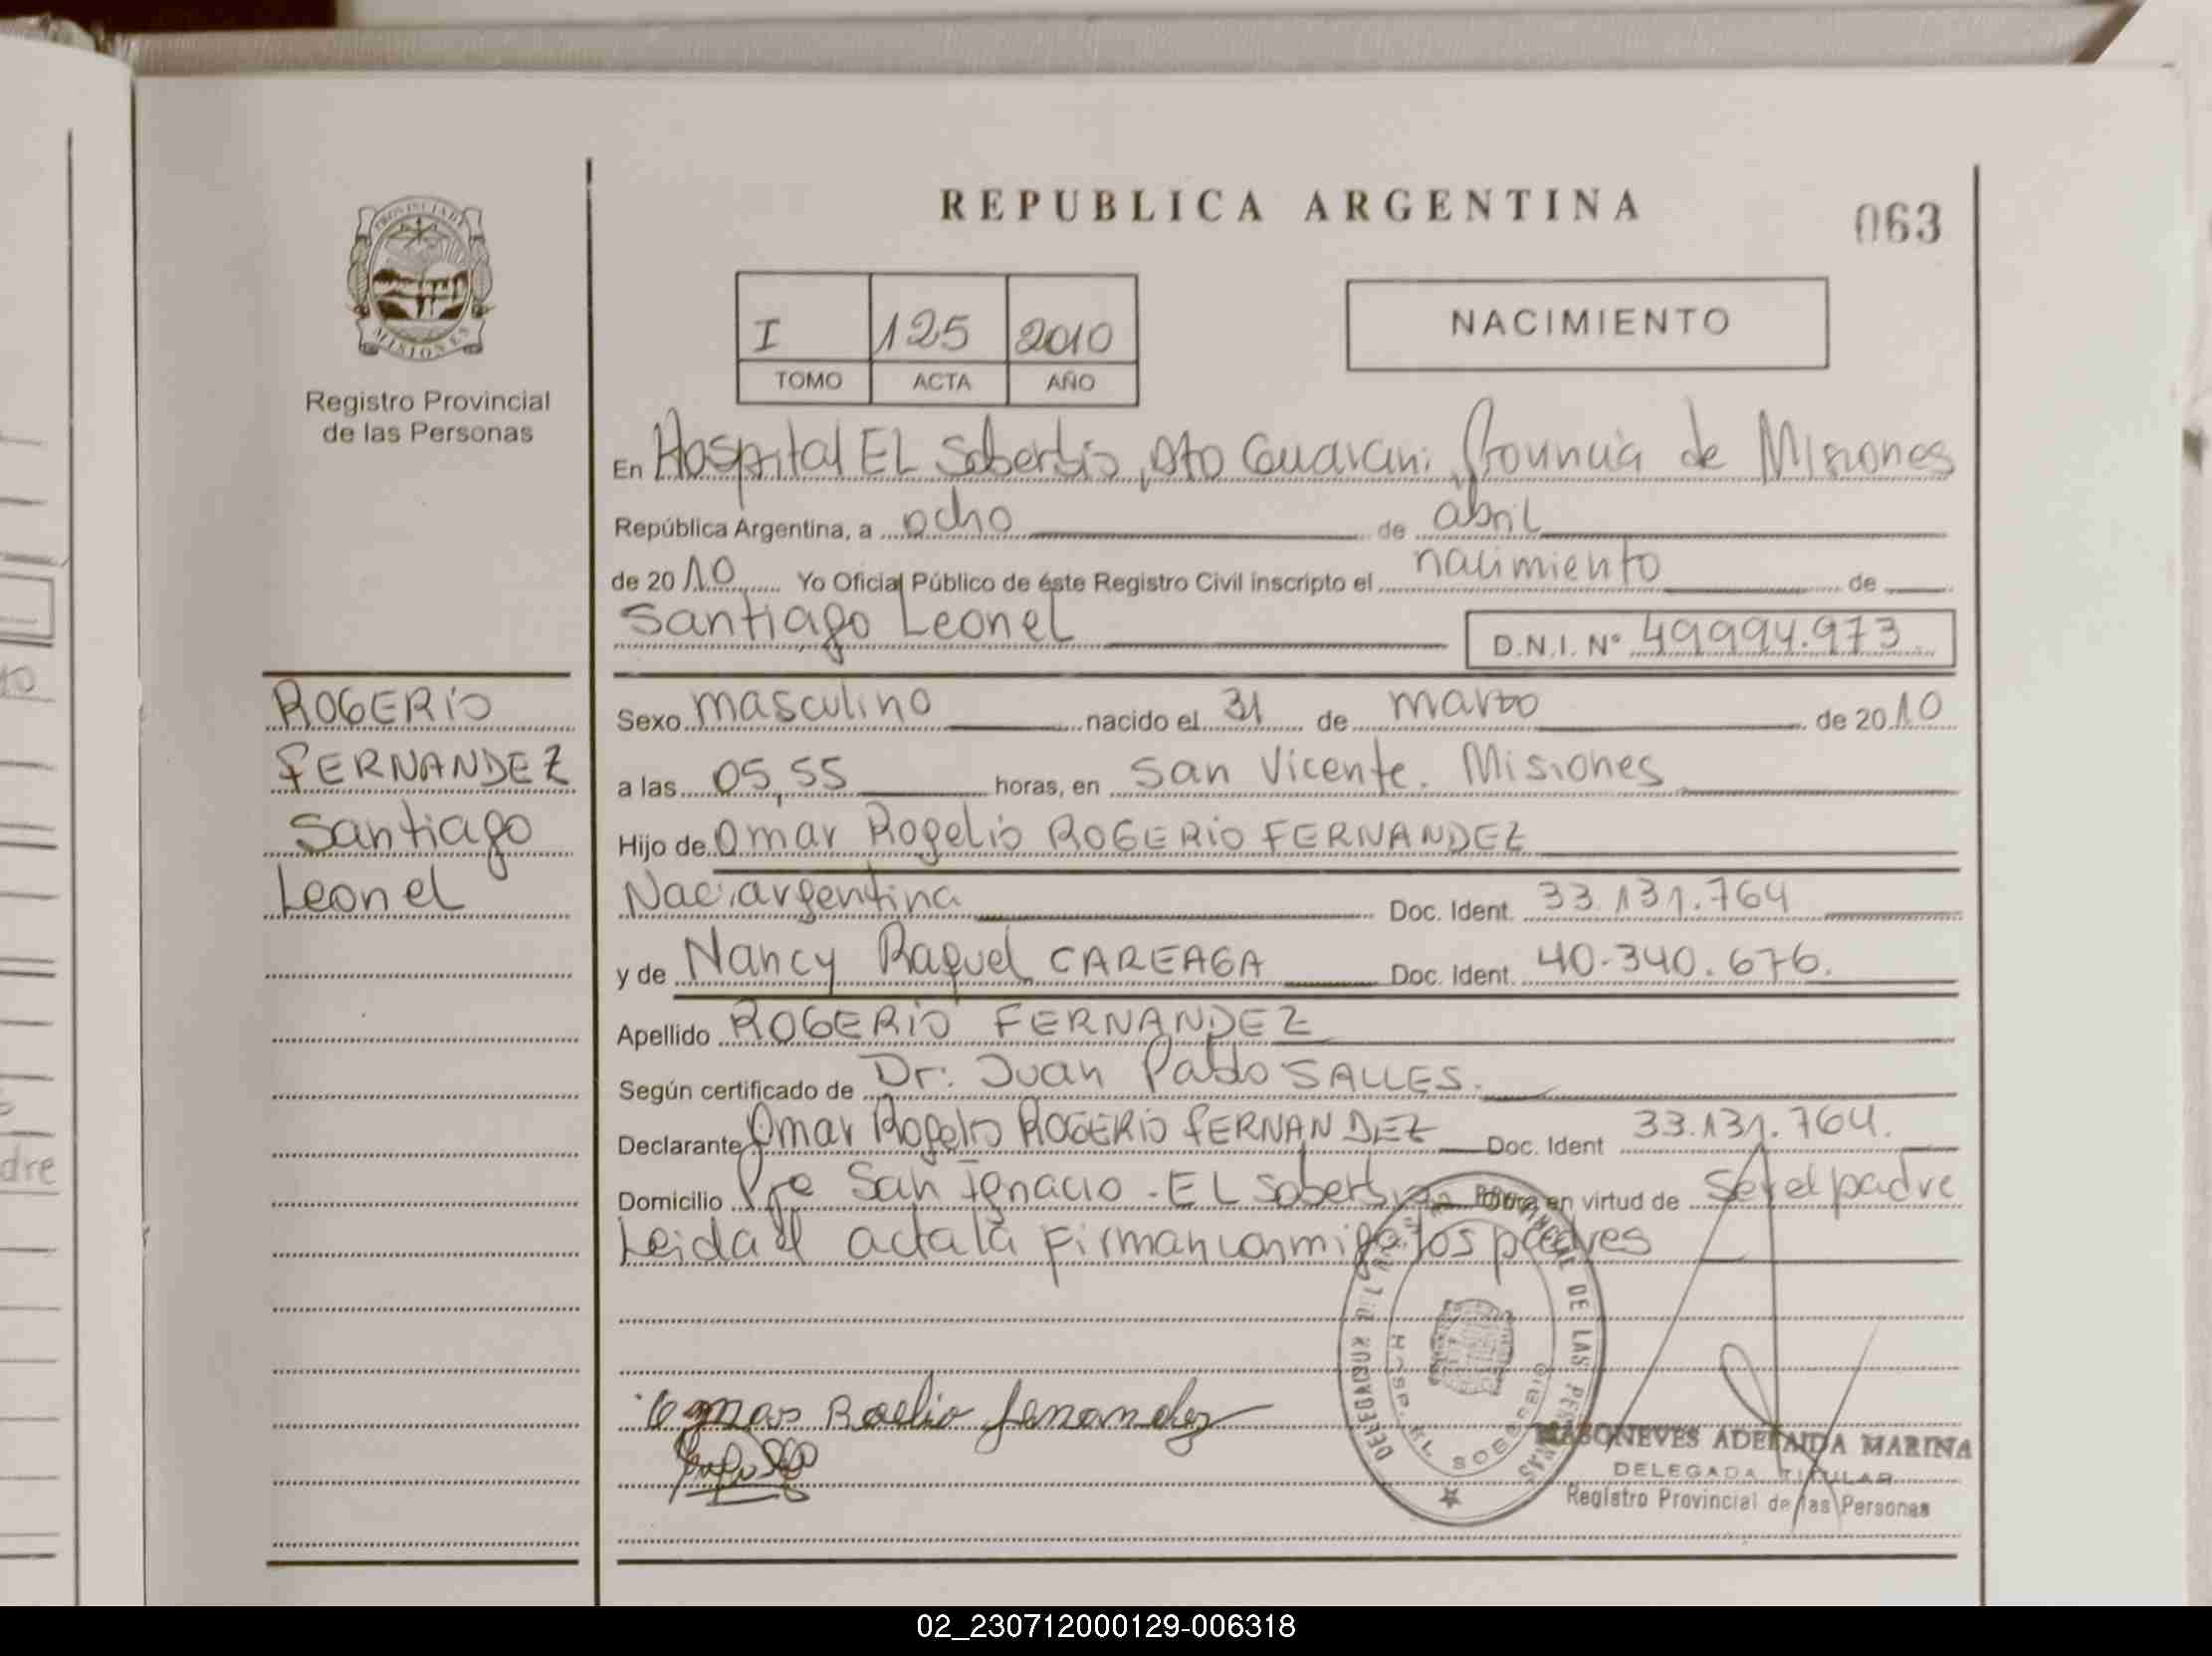 PROVINCIA DE
MISIONES
Registro Provincial
de las Personas
REPUBLICA ARGENTINA
063
I 125 2010
TOMO ACTA AÑO
NACIMIENTO
En Hospital EL Soberbio, Dto Guarani, Provincia de Misiones
República Argentina, a ocho de abril
de 2010 Yo Oficial Público de éste Registro Civil inscripto el nacimiento de
Santiago Leonel D.N.I. Nº 49994.973
ROGERIO
FERNANDEZ
Santiago
Leonel
Sexo masculino nacido el 31 de marzo de 2010
a las 05,55 horas, en San Vicente. Misiones
Hijo de Omar Rogelio ROGERIO FERNANDEZ
Nac. argentina Doc. Ident. 33.131.764
y de Nancy Raquel CAREAGA Doc. Ident. 40.340.676.
Apellido ROGERIO FERNANDEZ
Según certificado de Dr. Juan Pablo SALLES.
Declarante Omar Rogelio ROGERIO FERNANDEZ Doc. Ident 33.131.764.
Domicilio Pje San Ignacio. EL Soberbio Obra en virtud de ser el padre
Leida el acta la firman conmigo los padres
DE LAS PERSONAS
HOSP. EL SOBERBIO
ADELAIDA MARINA
DELEGADA TITULAR
Registro Provincial de las Personas
dre
02_230712000129-006318